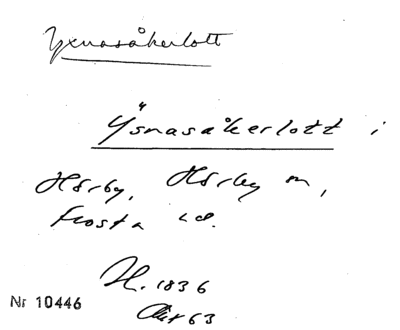 Yxnasåkerlott
Ÿsnasåkerlott i
Hörby, Hörby sn,
Frosta hd.
H. 1836
Akt 63
Nr 10446